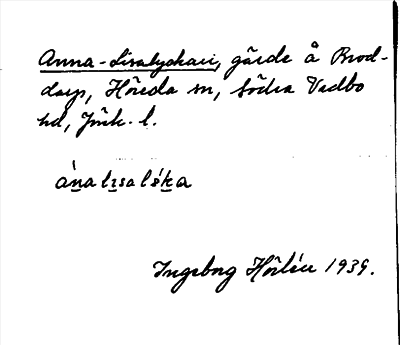 Anna-Lisalyckan, gärde å Brod-
darp, Höreda sn, Södra Vedbo
hd, Jönk. l.
Ingeborg Hörlén 1939.